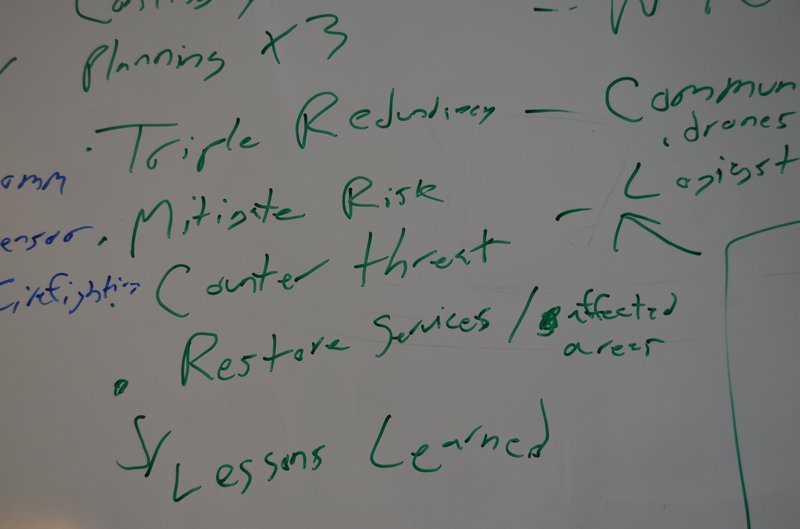 Planning x3
• Triple Redundancy — Commun
• drones
Logist
• Mitigate Risk
• Counter threat –
• Restore Services / affected areas
Lessons Learned
omm
ensor
Firefighting